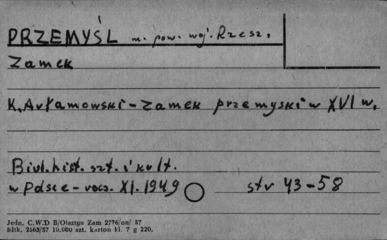 PRZEMYŚL m. pow. woj. Rzesz.
Zamek
K. Arłamowski - Zamek przemyski w XVI w.
Biul. hist. szt. i kult.
w Polsce - rocz. XI. 1949 str 43-58
Jedn. C.W.D B/Olsztyn Zam 2776/on/ 57
Bltk. 2563/57 10.000 szt. karton kl. 7 g 220.